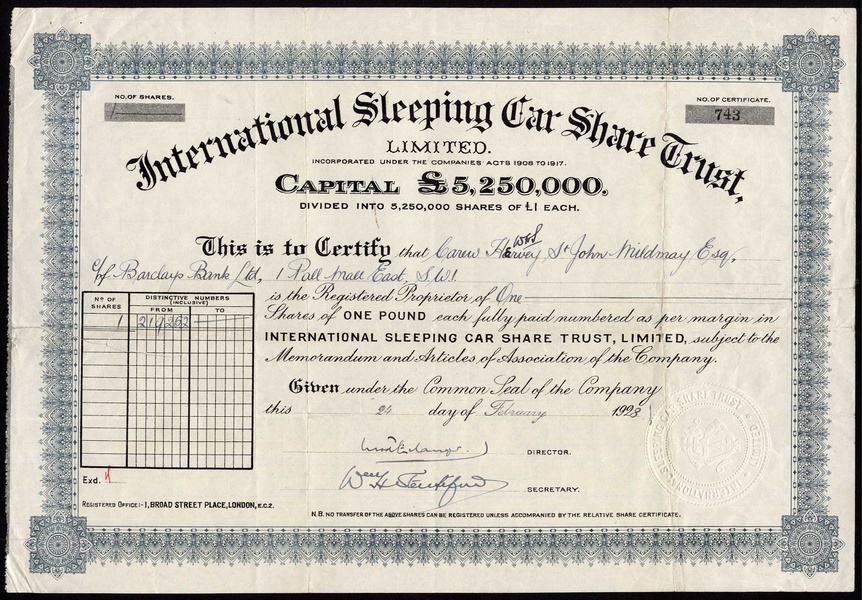 NO. OF SHARES.
1
NO. OF CERTIFICATE.
743
International Sleeping Car Share Trust,
LIMITED.
INCORPORATED UNDER THE COMPANIES ACTS 1908 TO 1917.
CAPITAL £5,250,000.
DIVIDED INTO 5,250,000 SHARES OF £1 EACH.
This is to Certify that Carew Hervey St John Mildmay Esq,
c/o Barclays Bank Ltd, 1 Pall Mall East, S.W.1.
is the Registered Proprietor of One
Shares of ONE POUND each fully paid numbered as per margin in
INTERNATIONAL SLEEPING CAR SHARE TRUST, LIMITED, subject to the
Memorandum and Articles of Association of the Company.
Nº OF SHARES
DISTINCTIVE NUMBERS
(INCLUSIVE)
FROM TO
1 219262
Given under the Common Seal of the Company
this 24 day of February 1928
DIRECTOR.
SECRETARY.
Exd.
REGISTERED OFFICE:- 1, BROAD STREET PLACE, LONDON, E.C.2.
N.B. NO TRANSFER OF THE ABOVE SHARES CAN BE REGISTERED UNLESS ACCOMPANIED BY THE RELATIVE SHARE CERTIFICATE.
INTERNATIONAL SLEEPING CAR SHARE TRUST LIMITED